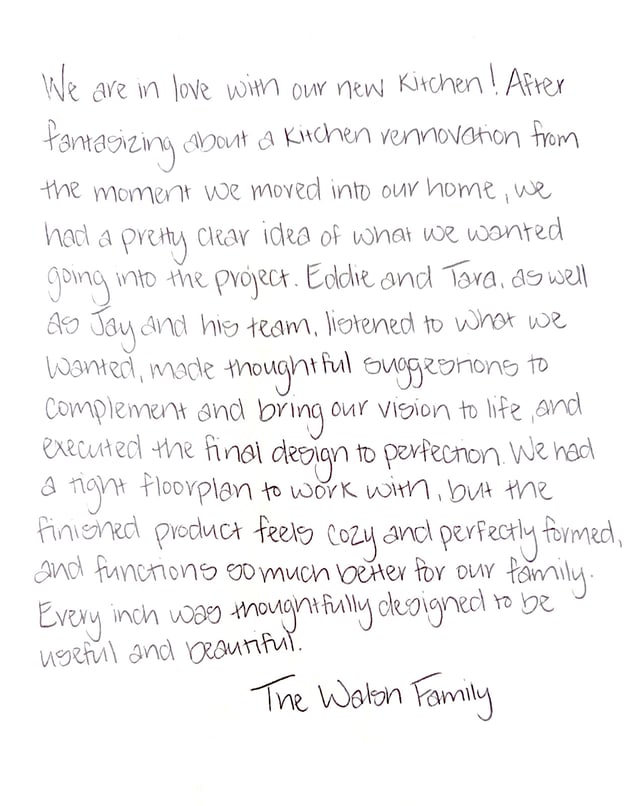 We are in love with our new kitchen! After
fantasizing about a kitchen rennovation from
the moment we moved into our home, we
had a pretty clear idea of what we wanted
going into the project. Eddie and Tara, as well
as Jay and his team, listened to what we
wanted, made thoughtful suggestions to
complement and bring our vision to life, and
executed the final design to perfection. We had
a tight floorplan to work with, but the
finished product feels cozy and perfectly formed,
and functions so much better for our family.
Every inch was thoughtfully designed to be
useful and beautiful.
The Walsh Family